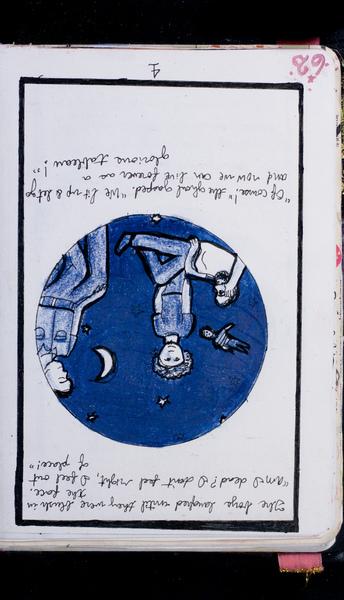 The boys laughed until they were blush in
the face.
"Am I dead? I don't feel right, I feel out
of place!"
"Of course!" the ghoul gasped "We lit up & let go
and now we can live forever as a
glorious tableau!"